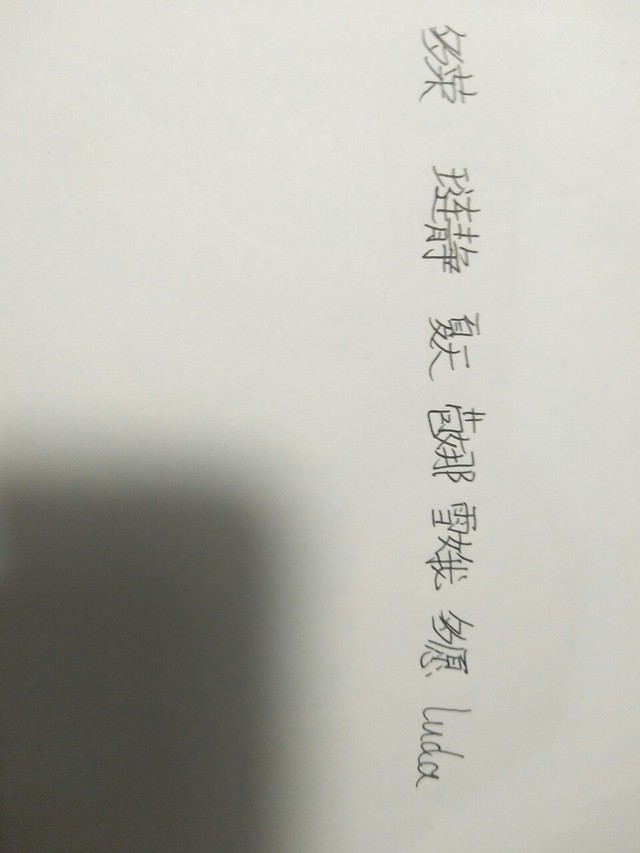 多荣 琏静 夏天 苞娜 雪娥 多愿 luda